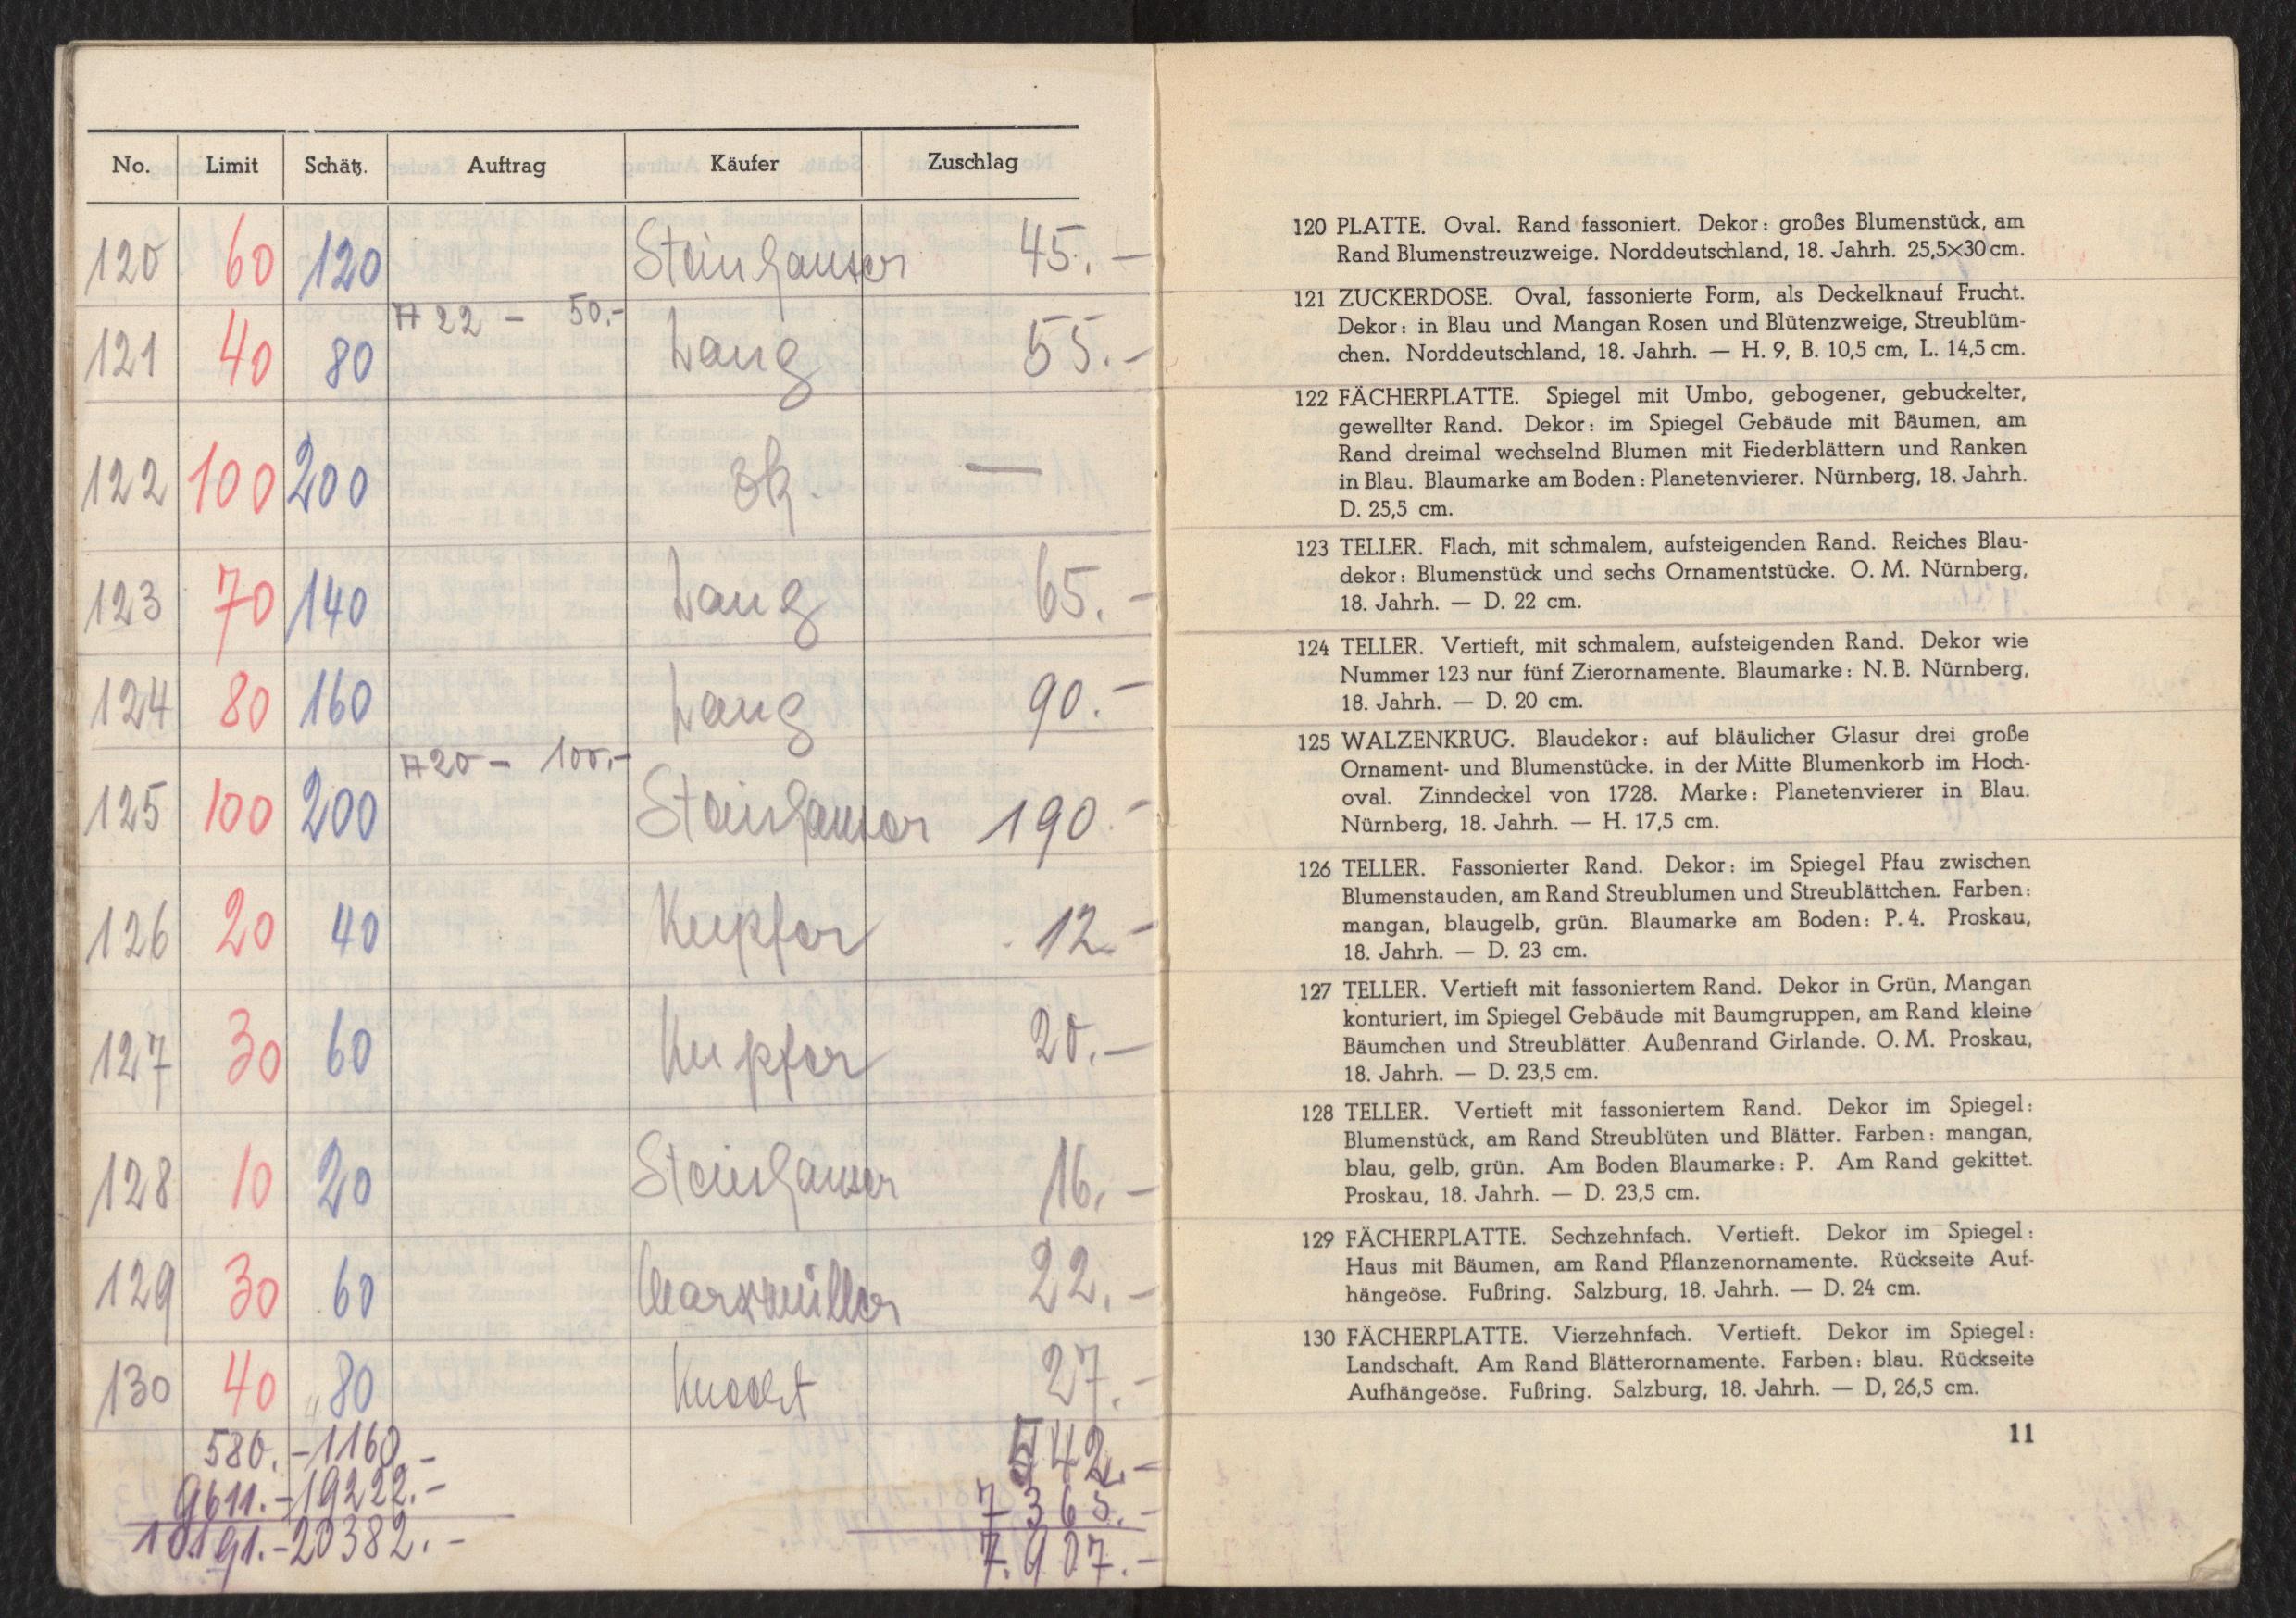 No. Limit Schätz. Auftrag Käufer Zuschlag
120 60 120 Steinhauser 45.-
121 40 80 A 22 - 50.- Lang 55.-
122 100 200 —
123 70 140 Lang 65.-
124 80 160 Lang 90.-
125 100 200 A 20 - 100.- Steinhauser 190.-
126 20 40 Kupfer 12.-
127 30 60 Kupfer 20.-
128 10 20 Steinhauser 16.-
129 30 60 Marxmüller 22.-
130 40 80 Knecht 27.-
580.- 1160.- 542.-
9611.- 19222.- 7365.-
10191.- 20382.- 7.907.-
120 PLATTE. Oval. Rand fassoniert. Dekor: großes Blumenstück, am
Rand Blumenstreuzweige. Norddeutschland, 18. Jahrh. 25,5×30 cm.
121 ZUCKERDOSE. Oval, fassonierte Form, als Deckelknauf Frucht.
Dekor: in Blau und Mangan Rosen und Blütenzweige, Streublüm-
chen. Norddeutschland, 18. Jahrh. — H. 9, B. 10,5 cm, L. 14,5 cm.
122 FÄCHERPLATTE. Spiegel mit Umbo, gebogener, gebuckelter,
gewellter Rand. Dekor: im Spiegel Gebäude mit Bäumen, am
Rand dreimal wechselnd Blumen mit Fiederblättern und Ranken
in Blau. Blaumarke am Boden: Planetenvierer. Nürnberg, 18. Jahrh.
D. 25,5 cm.
123 TELLER. Flach, mit schmalem, aufsteigenden Rand. Reiches Blau-
dekor: Blumenstück und sechs Ornamentstücke. O. M. Nürnberg,
18. Jahrh. — D. 22 cm.
124 TELLER. Vertieft, mit schmalem, aufsteigenden Rand. Dekor wie
Nummer 123 nur fünf Zierornamente. Blaumarke: N. B. Nürnberg,
18. Jahrh. — D. 20 cm.
125 WALZENKRUG. Blaudekor: auf bläulicher Glasur drei große
Ornament- und Blumenstücke. in der Mitte Blumenkorb im Hoch-
oval. Zinndeckel von 1728. Marke: Planetenvierer in Blau.
Nürnberg, 18. Jahrh. — H. 17,5 cm.
126 TELLER. Fassonierter Rand. Dekor: im Spiegel Pfau zwischen
Blumenstauden, am Rand Streublumen und Streublättchen. Farben:
mangan, blaugelb, grün. Blaumarke am Boden: P. 4. Proskau,
18. Jahrh. — D. 23 cm.
127 TELLER. Vertieft mit fassoniertem Rand. Dekor in Grün, Mangan
konturiert, im Spiegel Gebäude mit Baumgruppen, am Rand kleine
Bäumchen und Streublätter. Außenrand Girlande. O. M. Proskau,
18. Jahrh. — D. 23,5 cm.
128 TELLER. Vertieft mit fassoniertem Rand. Dekor im Spiegel:
Blumenstück, am Rand Streublüten und Blätter. Farben: mangan,
blau, gelb, grün. Am Boden Blaumarke: P. Am Rand gekittet.
Proskau, 18. Jahrh. — D. 23,5 cm.
129 FÄCHERPLATTE. Sechzehnfach. Vertieft. Dekor im Spiegel:
Haus mit Bäumen, am Rand Pflanzenornamente. Rückseite Auf-
hängeöse. Fußring. Salzburg, 18. Jahrh. — D. 24 cm.
130 FÄCHERPLATTE. Vierzehnfach. Vertieft. Dekor im Spiegel:
Landschaft. Am Rand Blätterornamente. Farben: blau. Rückseite
Aufhängeöse. Fußring. Salzburg, 18. Jahrh. — D, 26,5 cm.
11